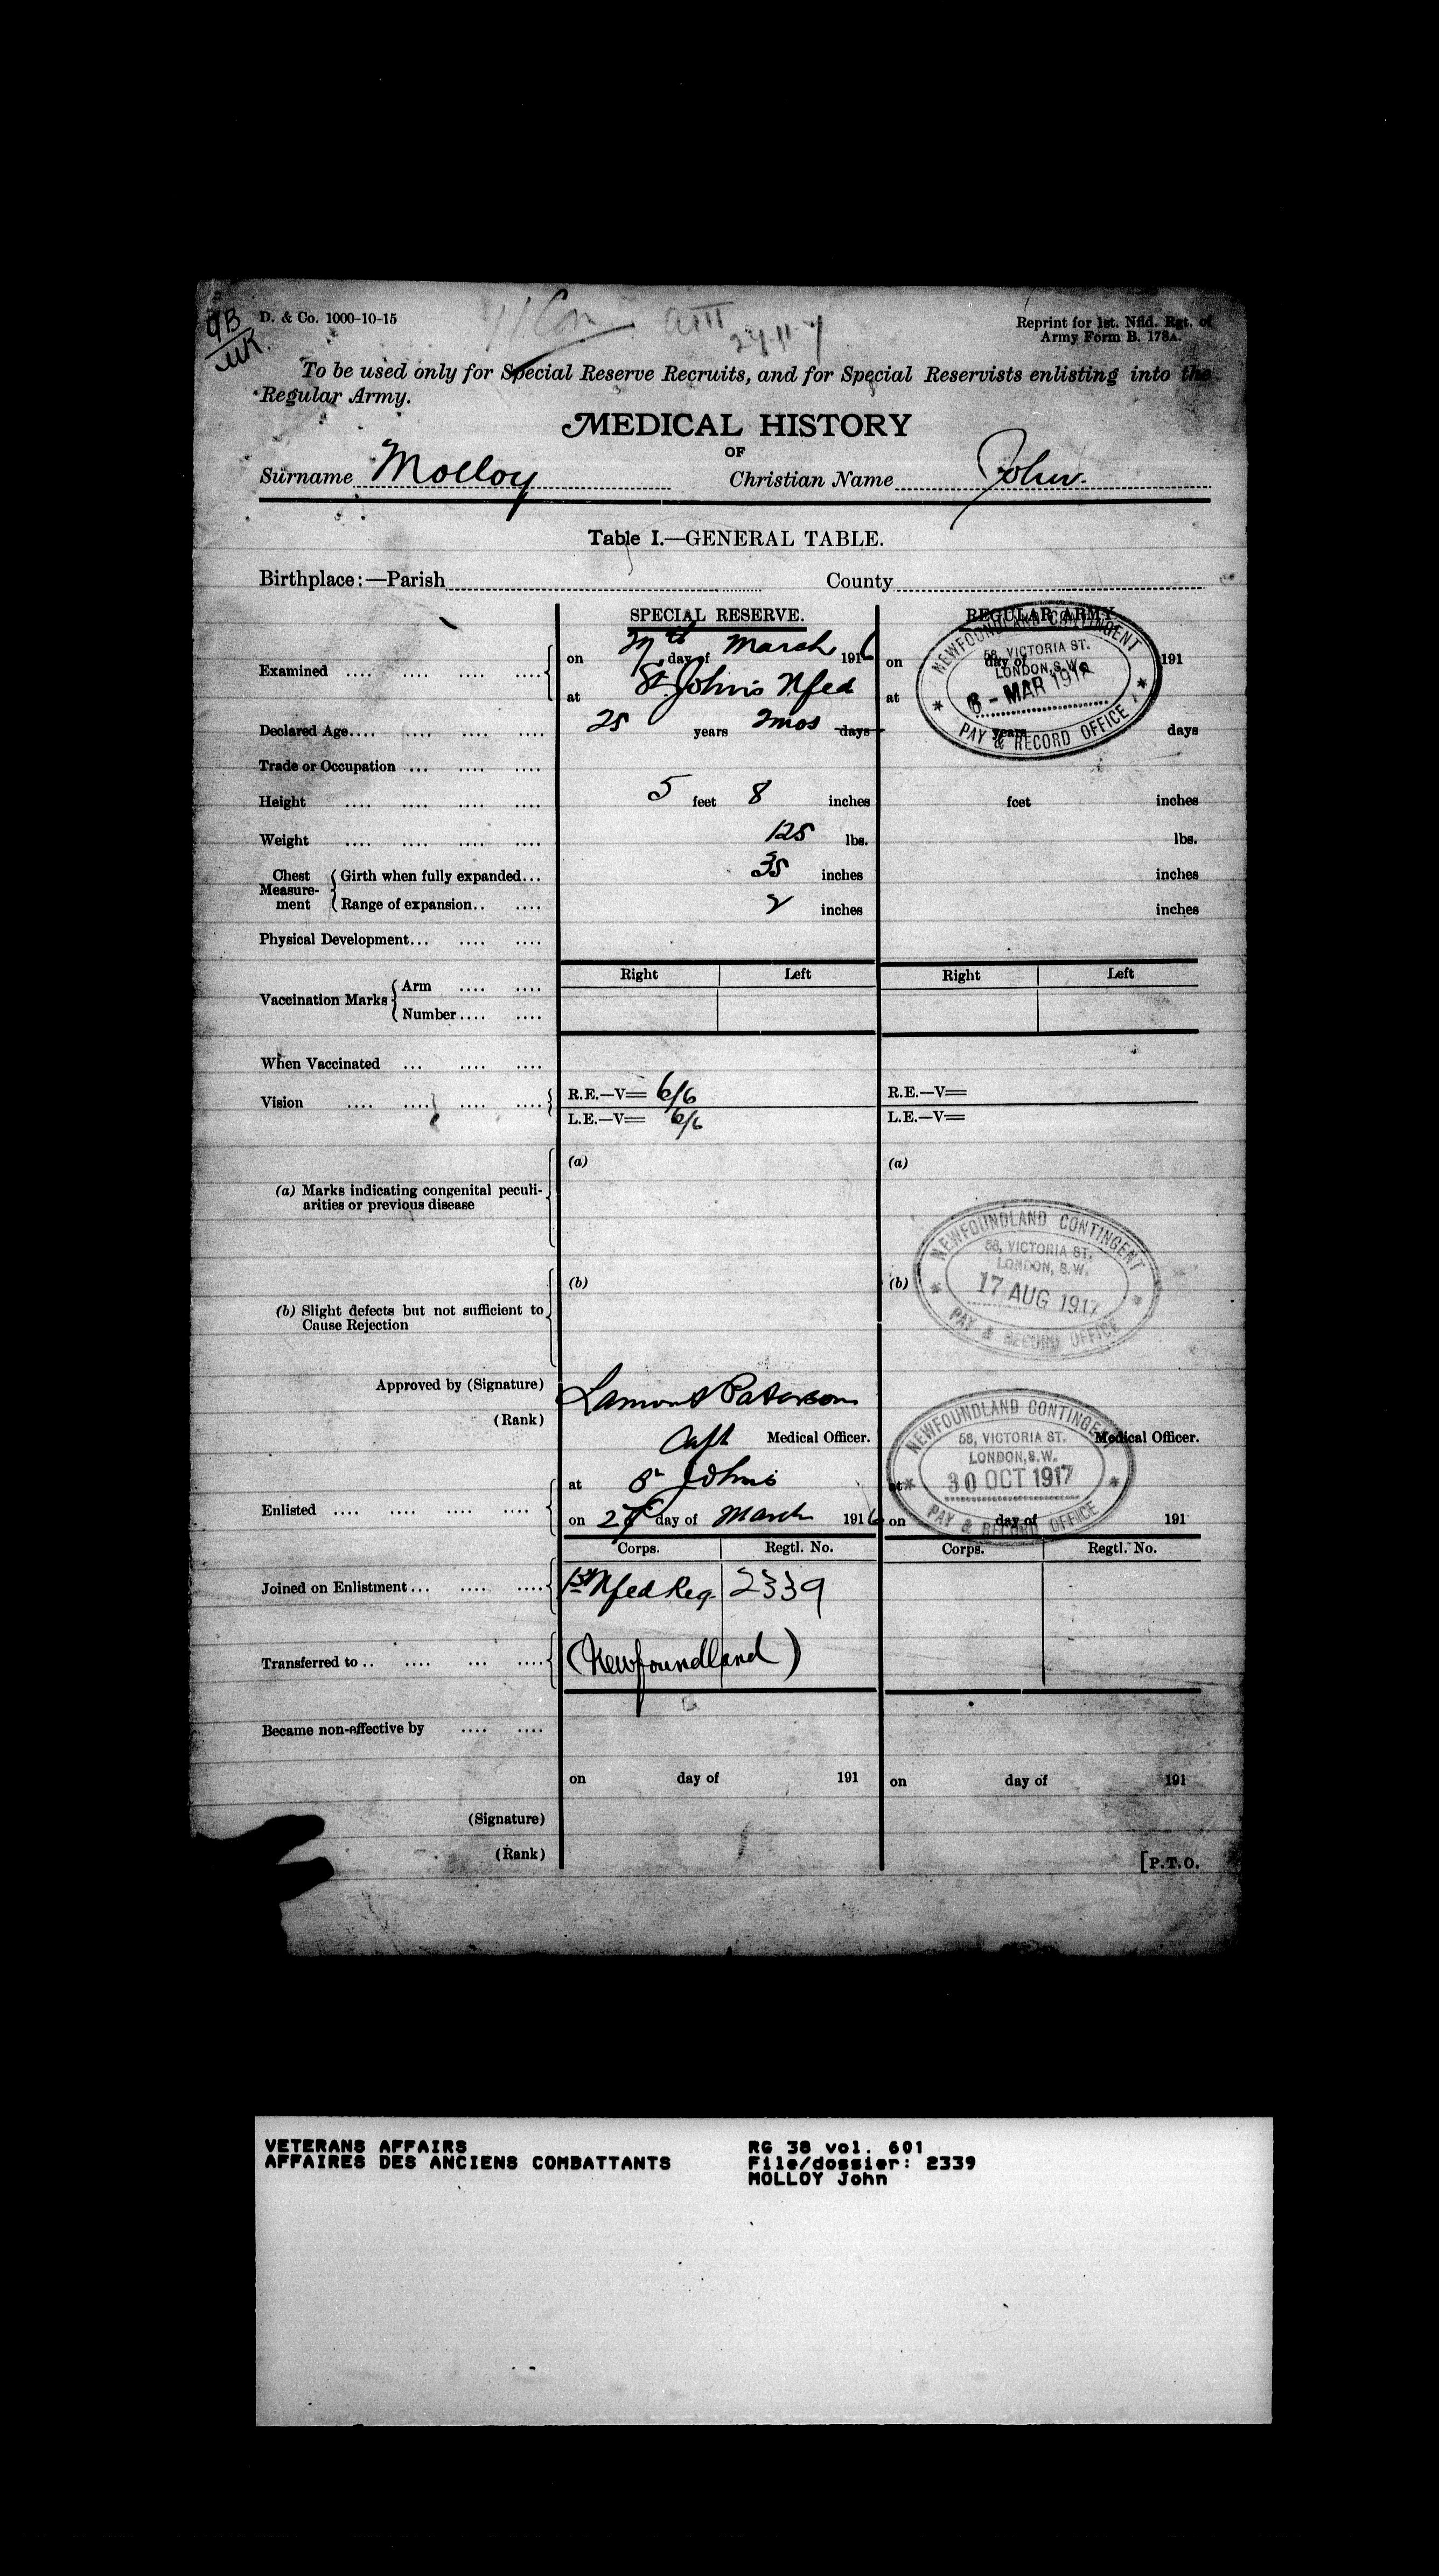 9B
D. & Co. 1000-10-15
Reprint for 1st. Nfld. Rgt. of
Army Form B. 178A.
To be used only for Special Reserve Recruits, and for Special Reservists enlisting into the
Regular Army.
MEDICAL HISTORY
OF
Surname Molloy Christian Name John.
Table I.—GENERAL TABLE.
Birthplace:—Parish County
SPECIAL RESERVE. REGULAR ARMY
Examined .... .... .... .... on day of March 1916 on day of 191
at St. John's Nfld at
NEWFOUNDLAND CONTINGENT
58, VICTORIA ST.
LONDON, S.W.
8 - MAR 1917
PAY & RECORD OFFICE
Declared Age.... .... .... .... 25 years 2mos days years days
Trade or Occupation ... .... ....
Height .... .... .... .... 5 feet 8 inches feet inches
Weight .... .... .... .... 125 lbs. lbs.
Chest Measurement Girth when fully expanded... 35 inches inches
Range of expansion.. .... 2 inches inches
Physical Development... .... ....
Right Left Right Left
Vaccination Marks Arm .... ....
Number.... ....
When Vaccinated ... .... ....
Vision .... .... .... .... R.E.—V= 6/6 R.E.—V=
L.E.—V= 6/6 L.E.—V=
(a) (a)
(a) Marks indicating congenital peculi-
arities or previous disease
NEWFOUNDLAND CONTINGENT
58, VICTORIA ST.
LONDON, S.W.
17 AUG 1917
PAY & RECORD OFFICE
(b) (b)
(b) Slight defects but not sufficient to
Cause Rejection
Approved by (Signature) Lamont Paterson
(Rank) Capt Medical Officer. Medical Officer.
NEWFOUNDLAND CONTINGENT
58, VICTORIA ST.
LONDON, S.W.
30 OCT 1917
PAY & RECORD OFFICE
at St Johns at
Enlisted .... .... .... .... on 27 day of March 1916 on day of 191
Corps. Regtl. No. Corps. Regtl. No.
Joined on Enlistment... .... .... 1st Nfld Reg. 2339
Transferred to .. .... ... .... (Newfoundland)
Became non-effective by .... ....
on day of 191 on day of 191
(Signature)
(Rank)
[P.T.O.
VETERANS AFFAIRS RG 38 vol. 601
AFFAIRES DES ANCIENS COMBATTANTS File/dossier: 2339
MOLLOY John